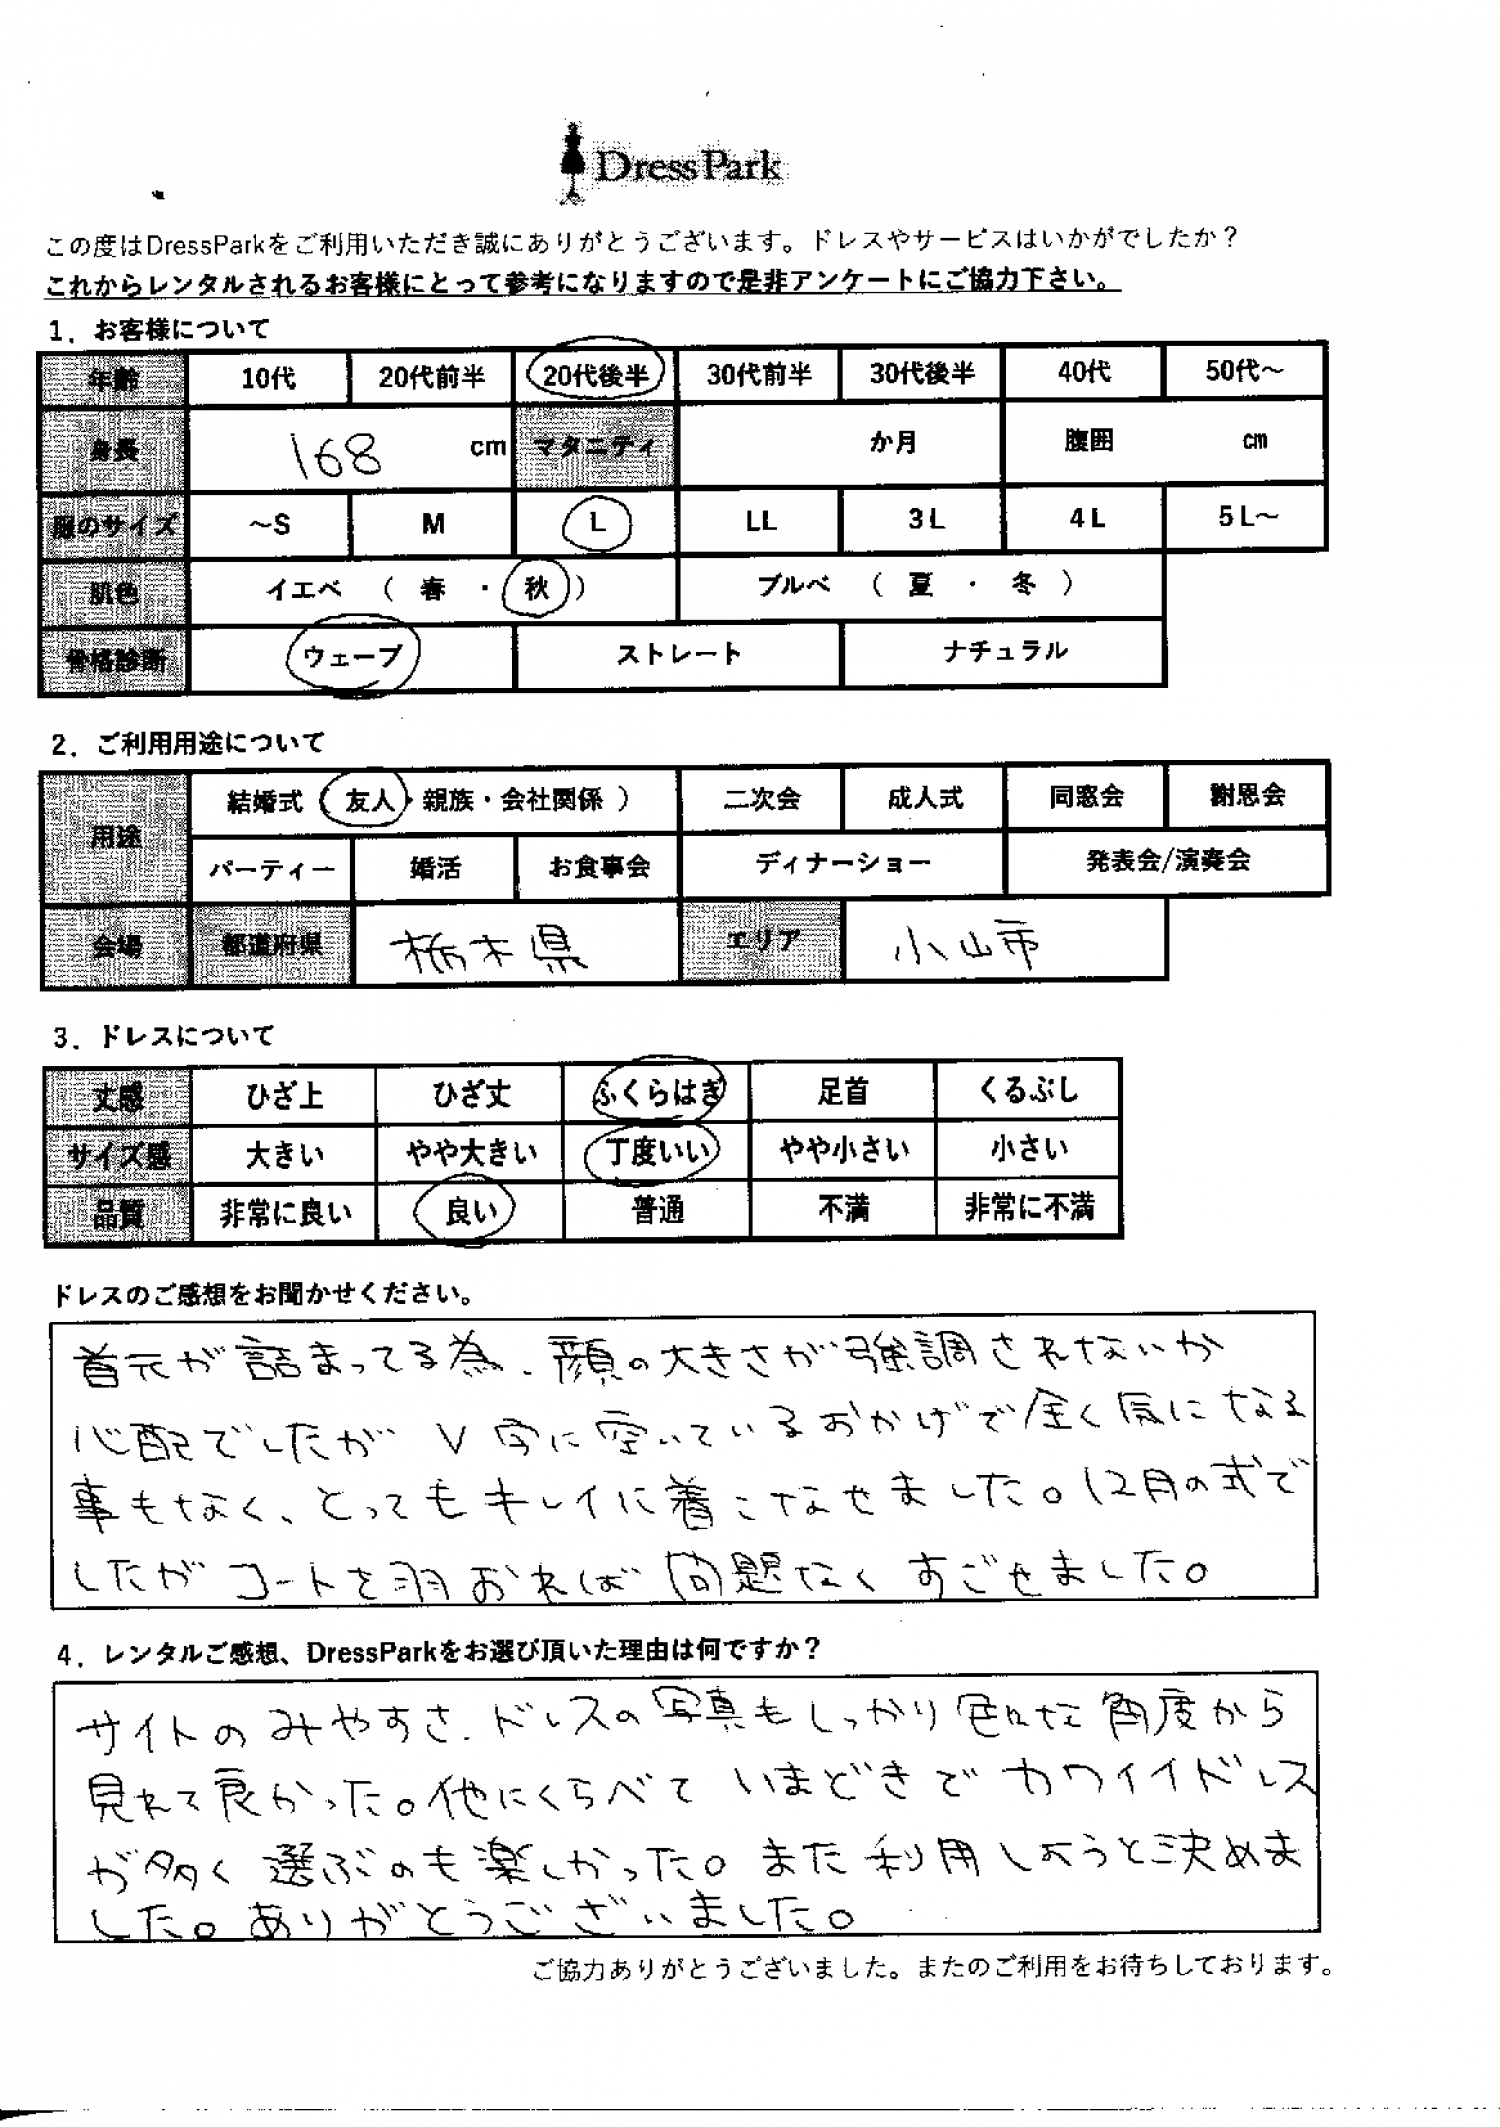 DressPark
この度はDressParkをご利用いただき誠にありがとうございます。ドレスやサービスはいかがでしたか？
これからレンタルされるお客様にとって参考になりますので是非アンケートにご協力下さい。
1．お客様について
年齢 10代 20代前半 20代後半 30代前半 30代後半 40代 50代～
身長 168 cm マタニティ か月 腹囲 cm
服のサイズ ～S M L LL 3L 4L 5L～
肌色 イエベ （ 春 ・ 秋 ） ブルベ （ 夏 ・ 冬 ）
骨格診断 ウェーブ ストレート ナチュラル
2．ご利用用途について
用途 結婚式（ 友人・親族・会社関係 ） 二次会 成人式 同窓会 謝恩会
パーティー 婚活 お食事会 ディナーショー 発表会/演奏会
会場 都道府県 栃木県 エリア 小山市
3．ドレスについて
丈感 ひざ上 ひざ丈 ふくらはぎ 足首 くるぶし
サイズ感 大きい やや大きい 丁度いい やや小さい 小さい
品質 非常に良い 良い 普通 不満 非常に不満
ドレスのご感想をお聞かせください。
首元が詰まってる為、顔の大きさが強調されないか
心配でしたが V字に空いているおかげで全く気になる
事もなく、とってもキレイに着こなせました。12月の式で
したがコートを羽おれば問題なくすごせました。
4．レンタルご感想、DressParkをお選び頂いた理由は何ですか？
サイトのみやすさ、ドレスの写真もしっかり色んな角度から
見れて良かった。他にくらべていまどきでカワイイドレス
が多く選ぶのも楽しかった。また利用しようと決めま
した。ありがとうございました。
ご協力ありがとうございました。またのご利用をお待ちしております。